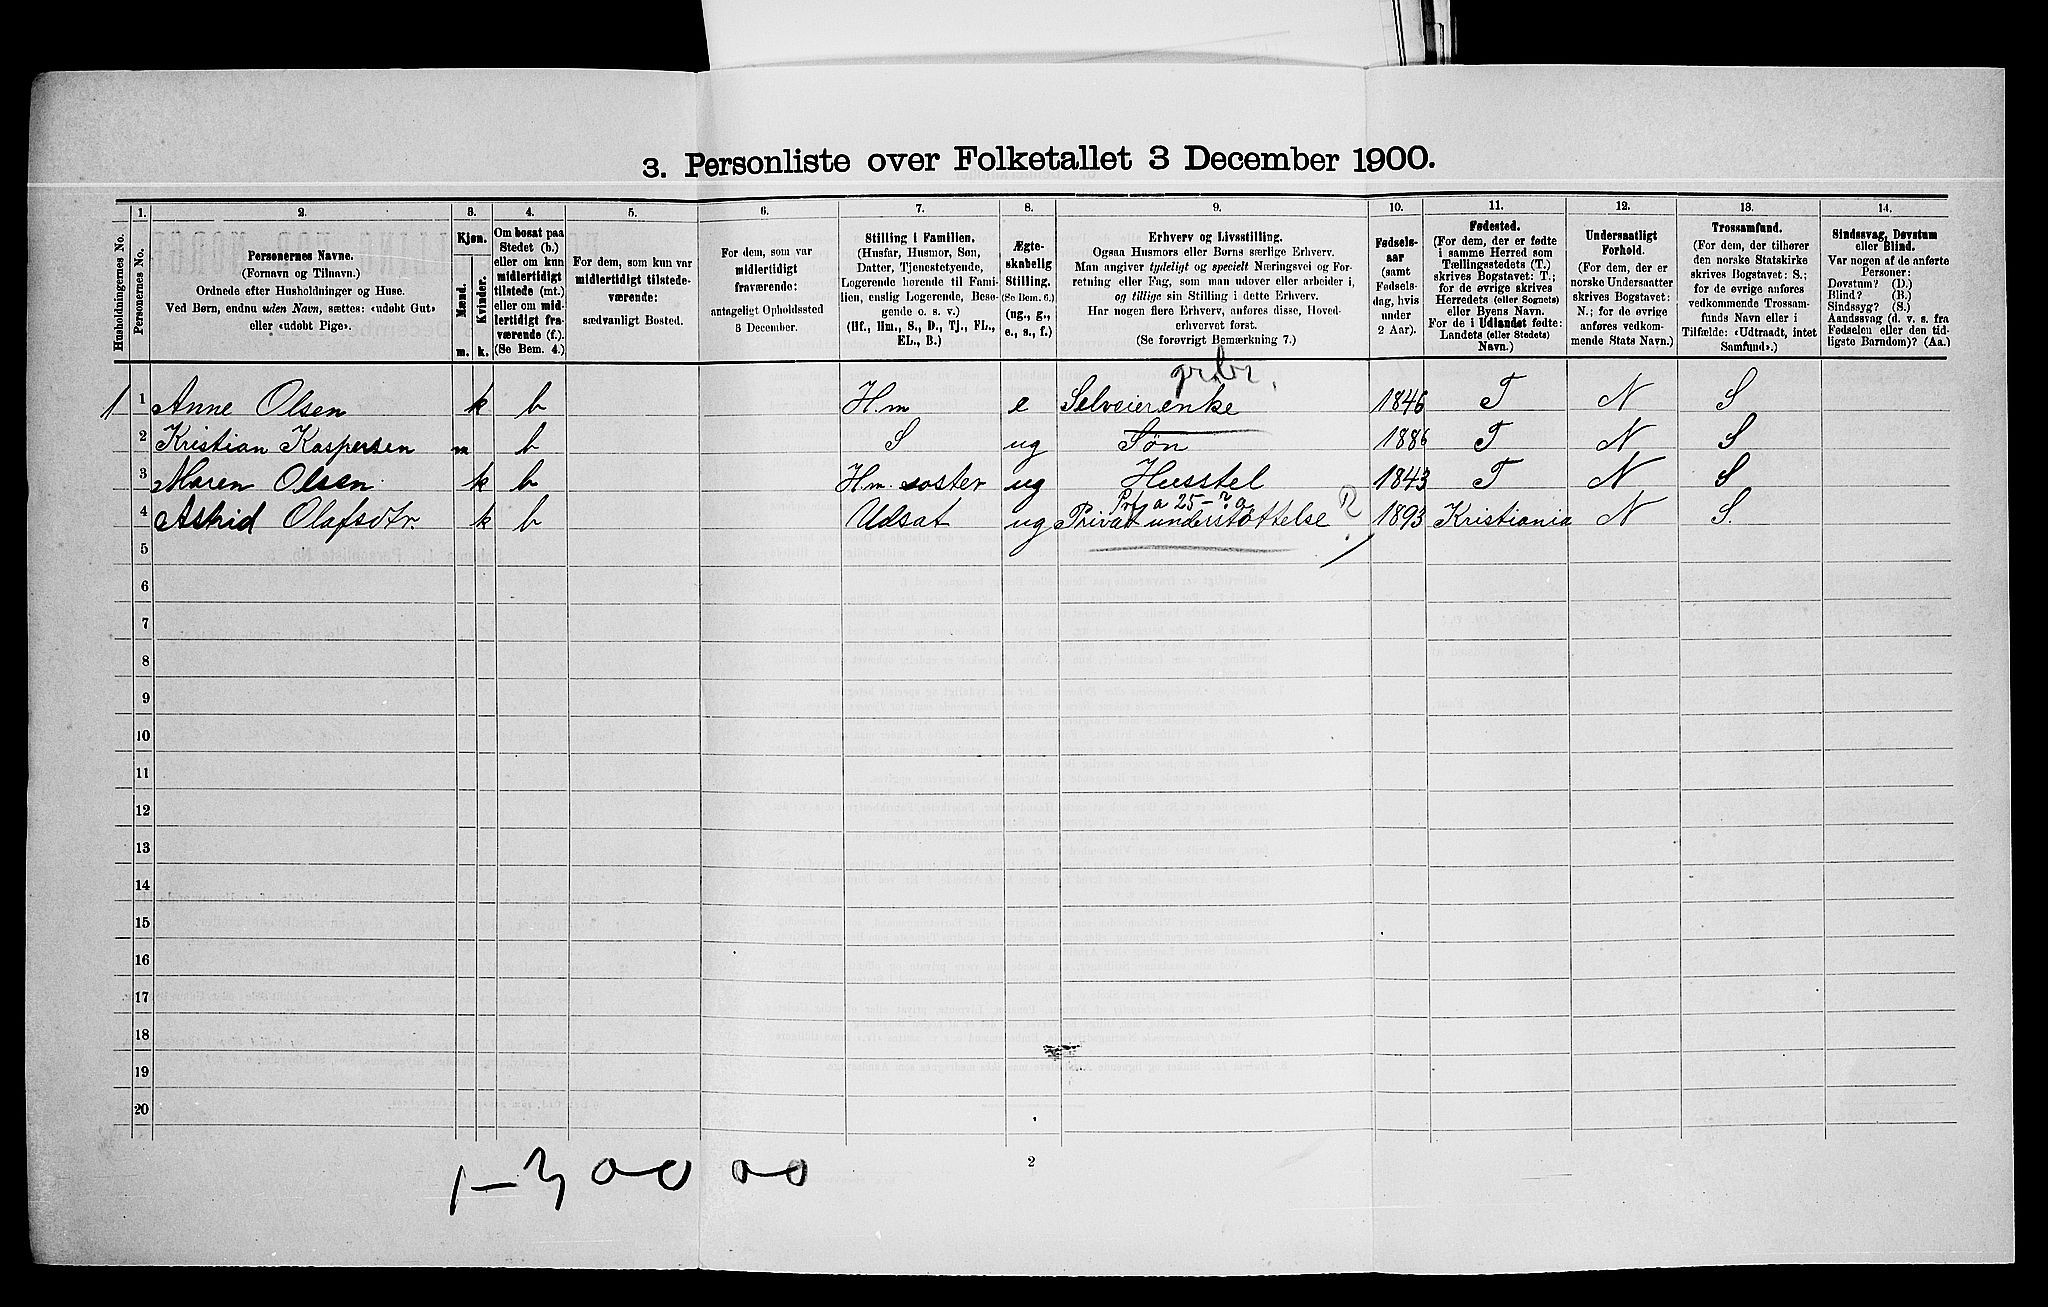 3. Personliste over Folketallet 3 December 1900.
1. 2. 3. 4. 5. 6. 7. 8. 9. 10. 11. 12. 13. 14.
Husholdningernes No.
Personernes No.
Personernes Navne.
(Fornavn og Tilnavn.)
Ordnede efter Husholdninger og Huse.
Ved Børn, endnu uden Navn, sættes: «udøbt Gut»
eller «udøbt Pige».
Kjøn.
Mænd.
Kvinder.
m. k.
Om bosat paa
Stedet (b.)
eller om kun
midlertidigt
tilstede (mt.)
eller om mid-
lertidigt fra-
værende (f.).
(Se Bem. 4.)
For dem, som kun var
midlertidigt tilstede-
værende:
sædvanligt Bosted.
For dem, som var
midlertidigt
fraværende:
antageligt Opholdssted
3 December.
Stilling i Familien.
(Husfar, Husmor, Søn,
Datter, Tjenestetyende,
Logerende hørende til Fami-
lien, enslig Logerende, Besø-
gende o. s. v.)
(Hf., Hm., S., D., Tj., FL.,
EL., B.)
Ægte-
skabelig
Stilling.
(Se Bem. 6.)
(ug., g.,
e., s., f.)
Erhverv og Livsstilling.
Ogsaa Husmors eller Børns særlige Erhverv.
Man angiver tydeligt og specielt Næringsvei og For-
retning eller Fag, som man udøver eller arbeider i,
og tillige sin Stilling i dette Erhverv.
Har nogen flere Erhverv, anføres disse, Hoved-
erhvervet først.
(Se forøvrigt Bemærkning 7.)
Fødsels-
aar
(samt
Fødsels-
dag, hvis
under
2 Aar).
Fødested.
(For dem, der er fødte
i samme Herred som
Tællingsstedets (T.)
skrives Bogstavet: T.;
for de øvrige skrives
Herredets (eller Sognets)
eller Byens Navn.
For de i Udlandet fødte:
Landets (eller Stedets)
Navn.)
Undersaatligt
Forhold.
(For dem, der er
norske Undersaatter
skrives Bogstavet:
N.; for de øvrige
anføres vedkom-
mende Stats Navn.)
Trossamfund.
(For dem, der tilhører
den norske Statskirke
skrives Bogstavet: S.;
for de øvrige anføres
vedkommende Trossam-
funds Navn eller i
Tilfælde: «Udtraadt, intet
Samfund».)
Sindssvag, Døvstum
eller Blind.
Var nogen af de anførte
Personer:
Døvstum? (D.)
Blind? (B.)
Sindssyg? (S.)
Aandssvag (d. v. s. fra
Fødselen eller den tid-
ligste Barndom)? (Aa.)
1 1 Anne Olsen k b Hm e Selveierenke 1846 T N S
2 Kristian Kaspersen m b S ug Søn 1886 T N S
3 Maren Olsen k b Hm. søster ug Husstel 1843 T N S
4 Astrid Olafsdtr k b Udsat ug Privat understøttelse 1893 Kristiania N S.
5
6
7
8
9
10
11
12
13
14
15
16
17
18
19
20
2